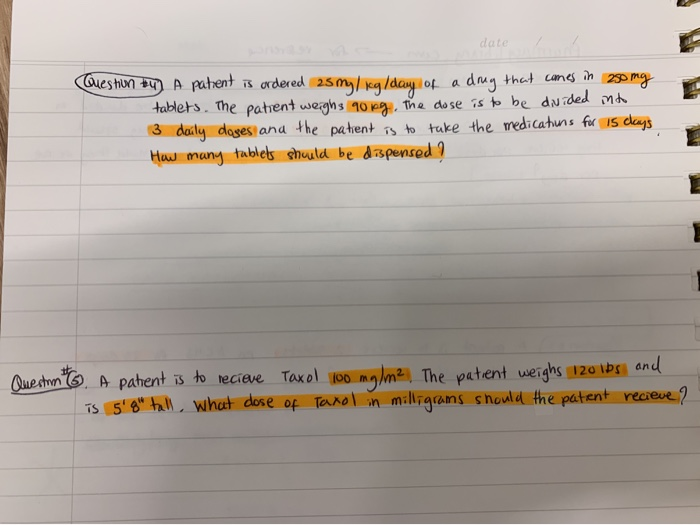 date / /
Question #4 A patient is ordered 25mg/kg/day of a drug that comes in 250mg
tablets. The patient weighs 90kg. The dose is to be divided into
3 daily doses and the patient is to take the medications for 15 days
How many tablets should be dispensed?
Question #5. A patient is to recieve Taxol 100 mg/m². The patient weighs 120lbs and
is 5'8" tall. What dose of Taxol in milligrams should the patent recieve?